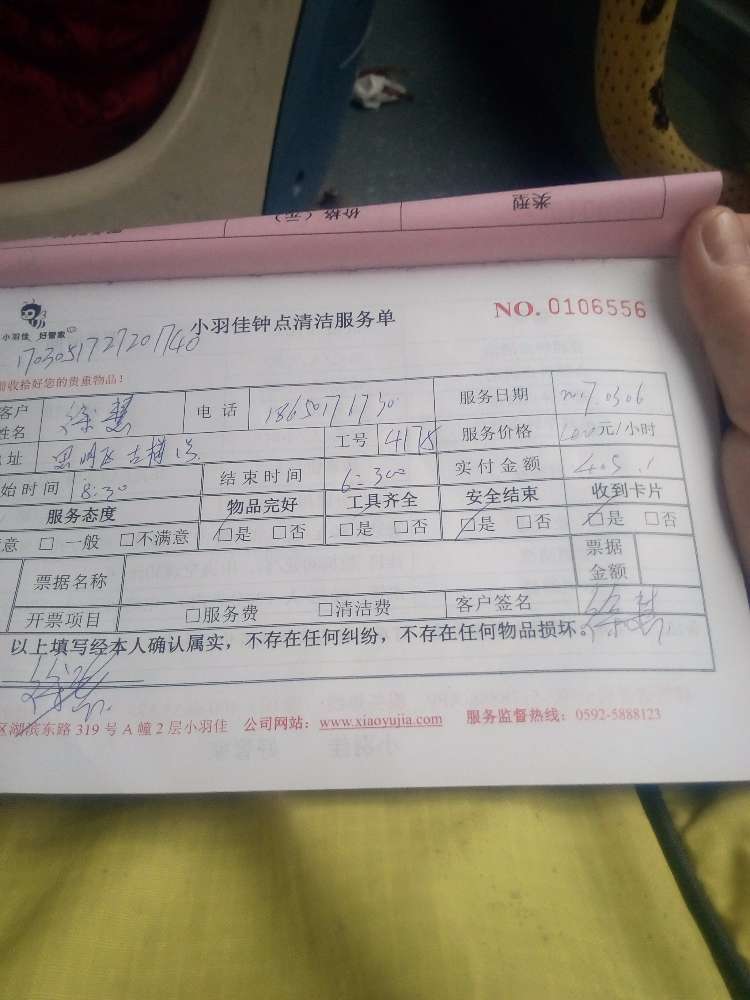 类型
价格（元）
小羽佳 好管家
小羽佳钟点清洁服务单
NO. 0106556
1703051727201740
收拾好您的贵重物品！
客户姓名 徐慧 电话 服务日期 2017.03.06
址 思明区 工号 4175 服务价格 元/小时
始时间 8:30 结束时间 实付金额
服务态度 物品完好 工具齐全 安全结束 收到卡片
意 □ 一般 □不满意 □是 □否 □是 □否 □是 □否 □是 □否
票据名称 票据金额
开票项目 □服务费 □清洁费 客户签名 徐慧
以上填写经本人确认属实，不存在任何纠纷，不存在任何物品损坏。
徐慧
区湖滨东路 319 号 A 幢 2 层小羽佳 公司网站：www.xiaoyujia.com 服务监督热线：0592-5888123